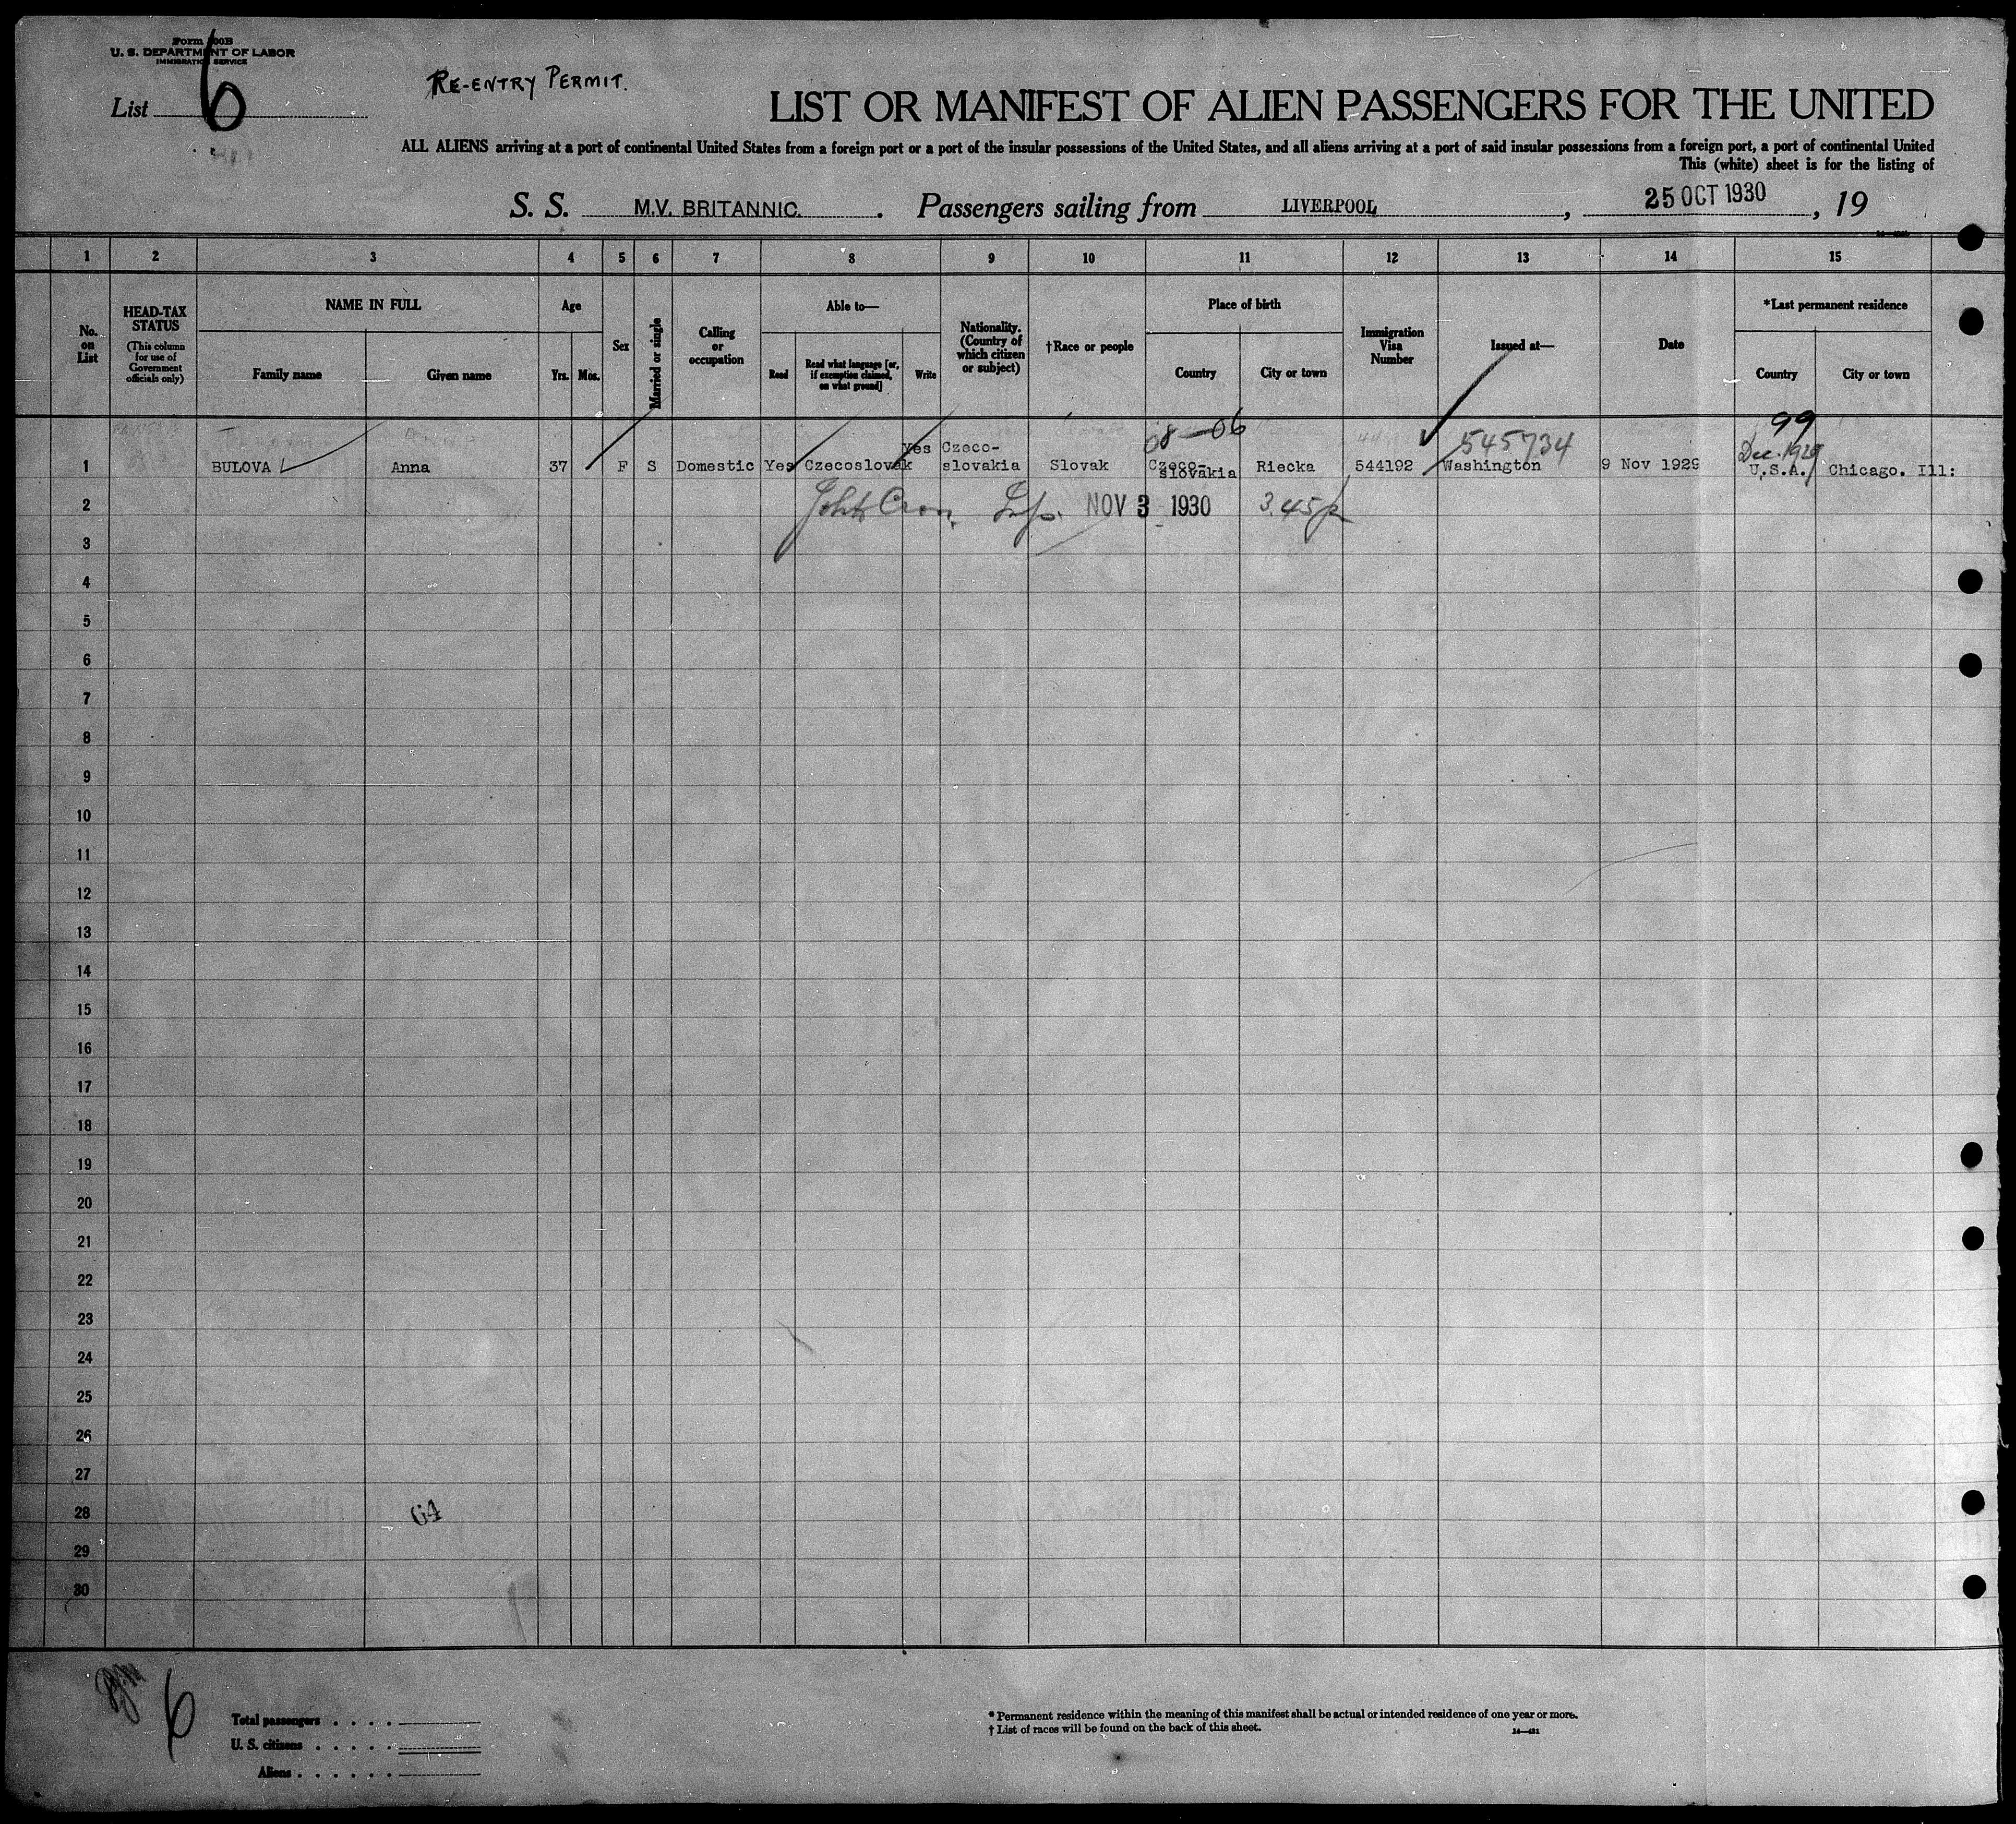 Form 500B
U. S. DEPARTMENT OF LABOR
IMMIGRATION SERVICE
List 6
RE-ENTRY PERMIT.
LIST OR MANIFEST OF ALIEN PASSENGERS FOR THE UNITED
ALL ALIENS arriving at a port of continental United States from a foreign port or a port of the insular possessions of the United States, and all aliens arriving at a port of said insular possessions from a foreign port, a port of continental United
This (white) sheet is for the listing of
S. S. M.V. BRITANNIC. Passengers sailing from LIVERPOOL, 25 OCT 1930, 19
1 2 3 4 5 6 7 8 9 10 11 12 13 14 15
No. on List
HEAD-TAX STATUS (This column for use of Government officials only)
NAME IN FULL
Family name Given name
Age
Yrs. Mos.
Sex
Married or single
Calling or occupation
Able to—
Read Read what language [or, if exemption claimed, on what ground] Write
Nationality. (Country of which citizen or subject)
†Race or people
Place of birth
Country City or town
Immigration Visa Number
Issued at—
Date
*Last permanent residence
Country City or town
08-06 545734 99
Dec. 1929
1 BULOVA Anna 37 F S Domestic Yes Czecoslovak Yes Czeco-slovakia Slovak Czeco-slovakia Riecka 544192 Washington 9 Nov 1929 U.S.A. Chicago. Ill:
2 NOV 3 1930 3.45p
3
4
5
6
7
8
9
10
11
12
13
14
15
16
17
18
19
20
21
22
23
24
25
26
27
28 64
29
30
6
Total passengers . . . .
U. S. citizens . . . . .
Aliens . . . . . .
* Permanent residence within the meaning of this manifest shall be actual or intended residence of one year or more.
† List of races will be found on the back of this sheet.
14—431